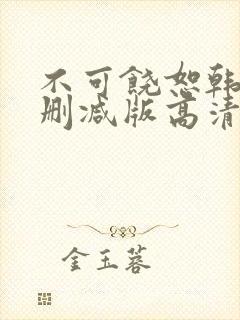 不可饶恕韩
删减版高清
金玉蓉